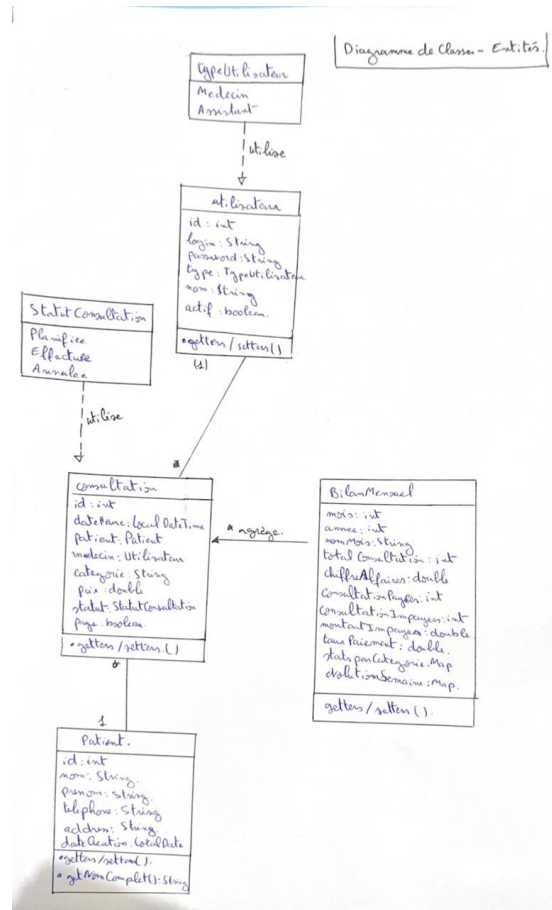 Diagramme de Classe - Entités.
TypeUtilisateur
Medecin
Assistant
utilise
utilisateur
id : int
login : String
password : String
type : TypeUtilisateur
nom : String
actif : boolean.
•getters / setters ( )
(1)
Statut Consultation
Planifiee
Effectuee
Annulee
utilise
*
consultation
id : int
dateHeure : Local DateTime
patient : Patient
medecin : Utilisateur
categorie : String
prix : double
statut : StatutConsultation
paye : boolean.
• getters / setters. ( )
*
* agrège.
BilanMensuel
mois : int
annee : int
nomMois : String
total Consultation : int
chiffreAffaires : double
consultationPayées : int
consultationImpayees : int
montantImpayees : double
tauxPaiement : double.
stats parCategorie : Map
evolutionSemaine : Map.
getters / setters ( ).
1
Patient.
id : int
nom : String.
prenom : String
telephone : String
address : String.
date Creation : LocalDate
•getters / setters( ).
• getNomComplet( ) : String